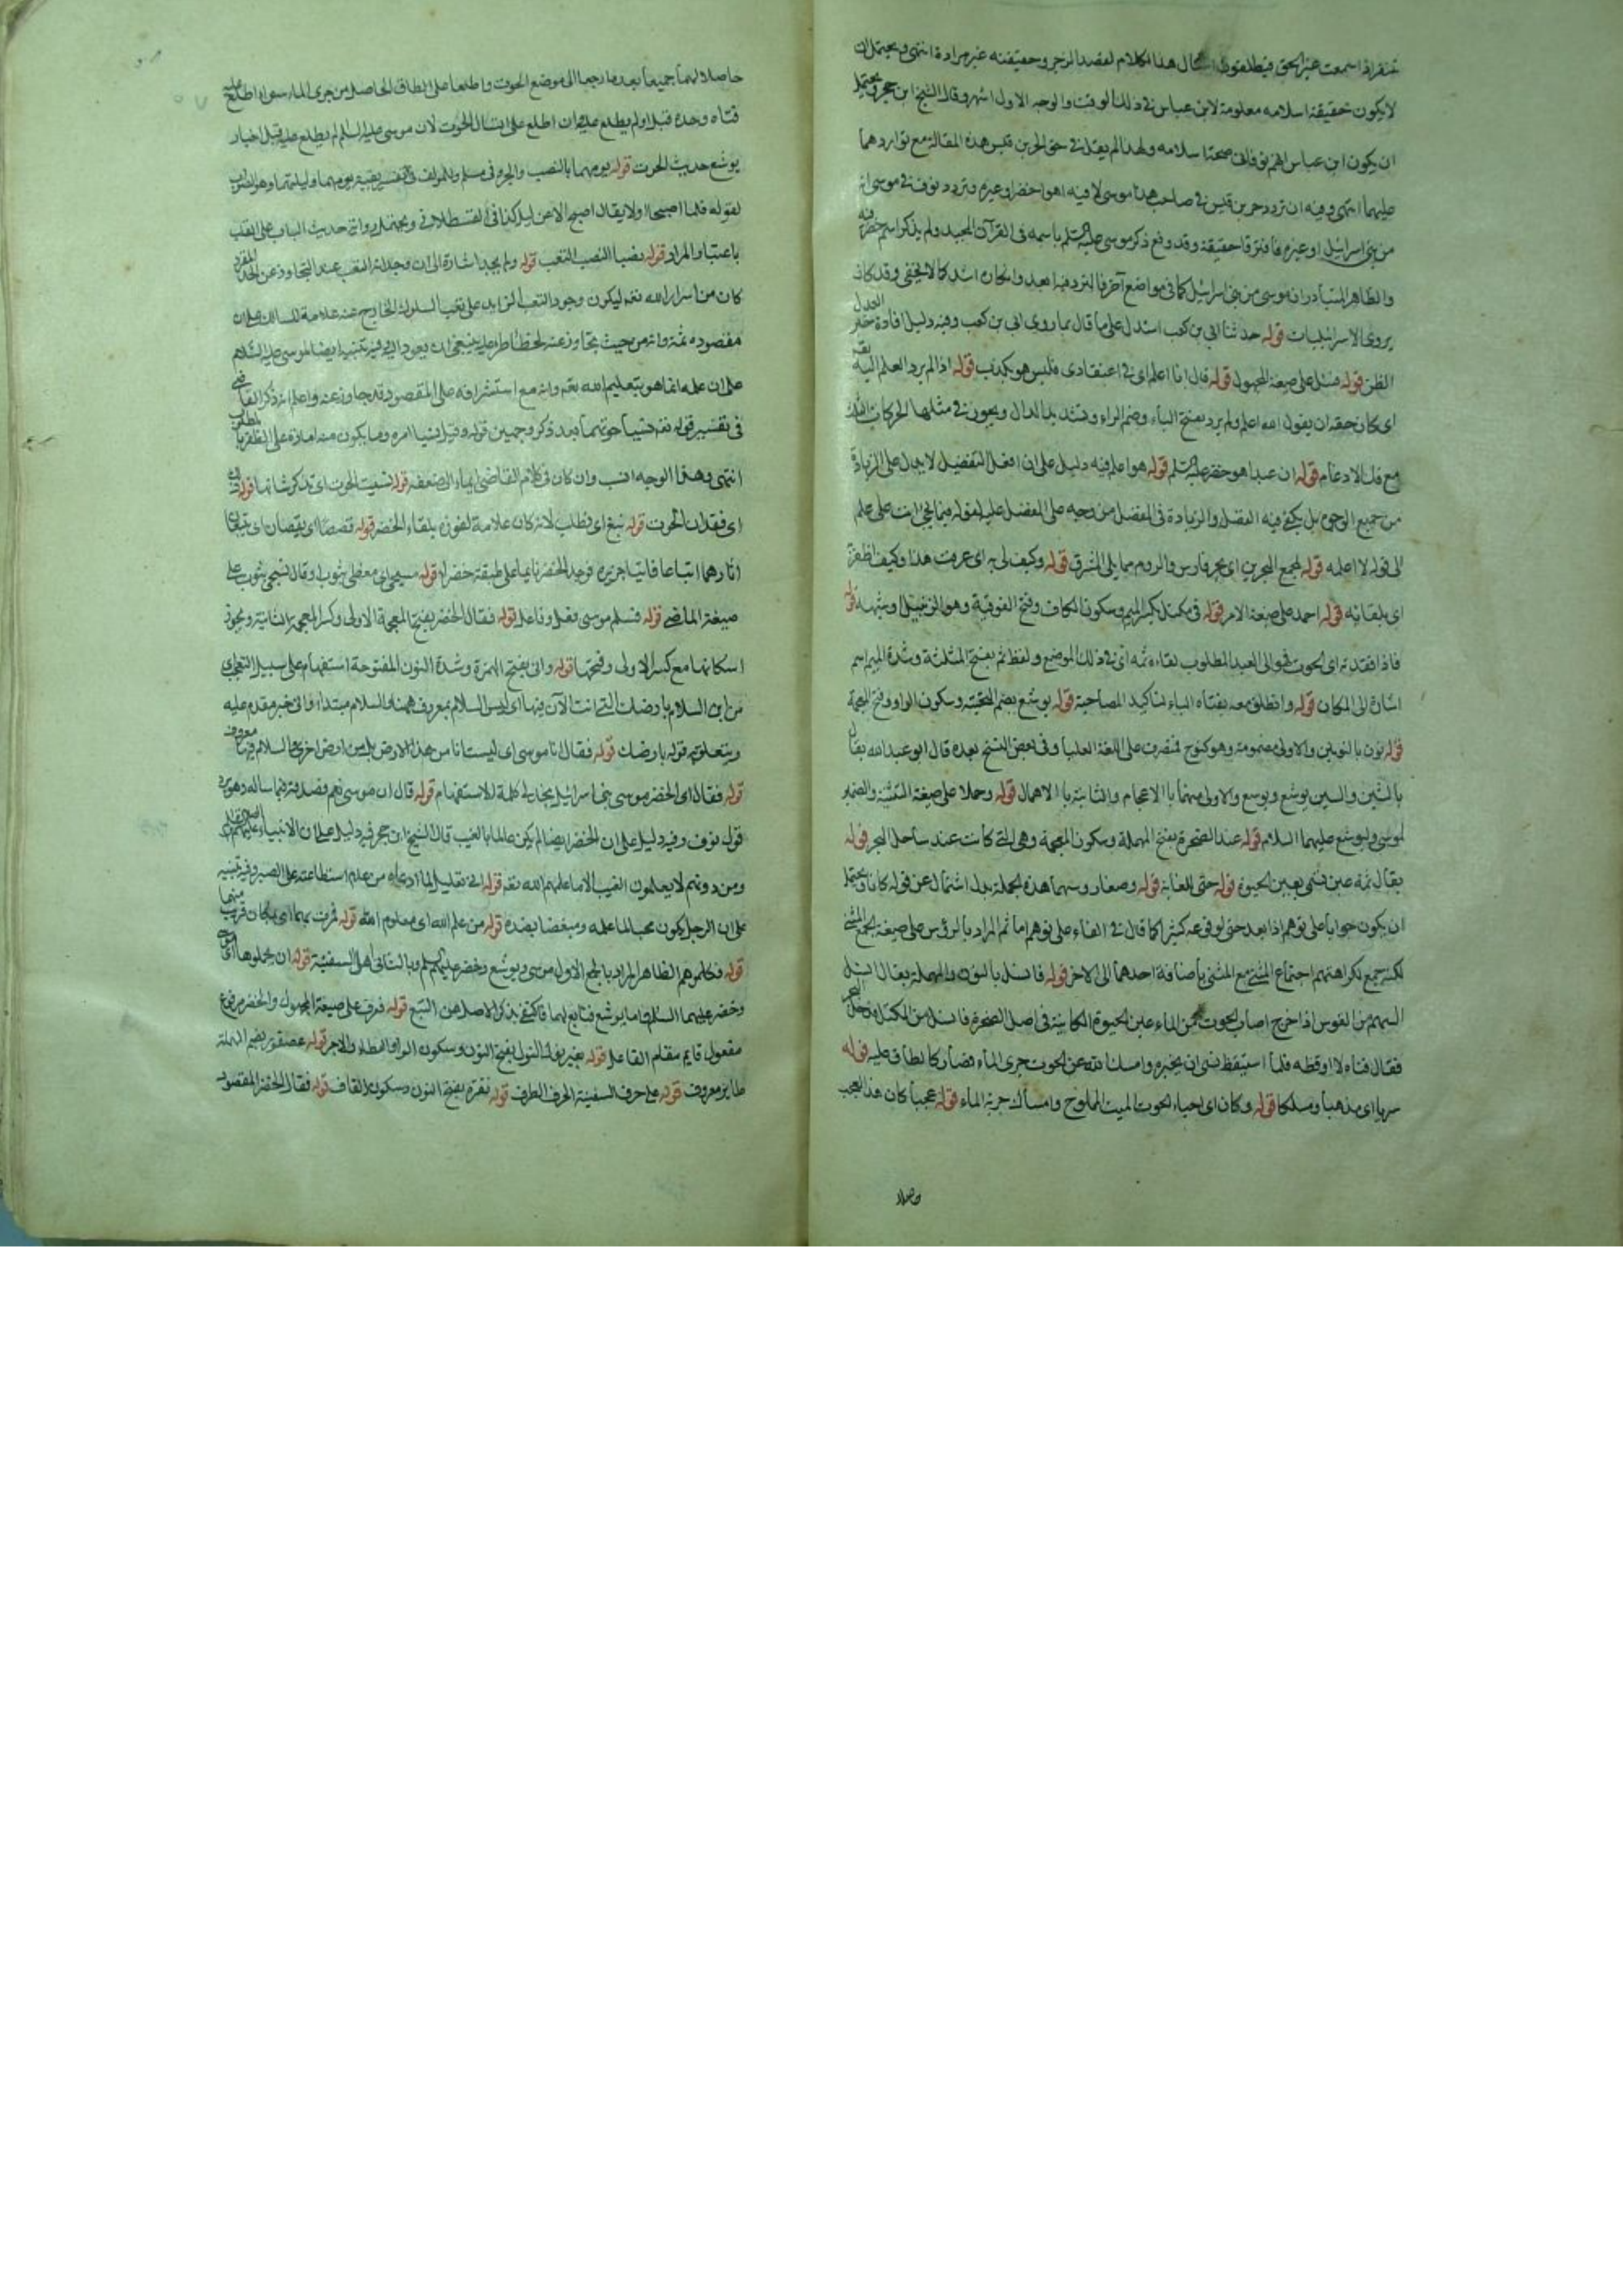 تنفر اذا سمعت غير الحق فيطلقون امثال هذا الكلام لقصد الزجر وحقيقته غير مرادة انتهى ويحتمل ان
لا يكون حقيقة اسلامه معلومة لابن عباس في ذلك الوقت والوجه الاول اشهر وقال الشيخ ابن حجر ويحتمل
ان يكون ابن عباس اتهم نوفا في صحة اسلامه ولهذا لم يقل في حق الحر بن قيس هذه المقالة مع تواردهما
عليهما انتهى وفيه ان تردد حر بن قيس في صاحب هذا موسى لا فيه اهو خضر او غيره وتردد نوف في موسى انه
من بني اسرائيل او غيره فافترقا حقيقة وقد وقع ذكر موسى عليه السلم باسمه في القرآن المجيد ولم يذكر اسم خضر فيه
والظاهر المتبادر انه موسى من بني اسرائيل كما في مواضع آخر فالتردد فيه ابعد وانكاره اشد كما لا يخفى وقد كان
يروى الاسرائيليات قوله حدثنا ابي بن كعب استدل على ما قال بما روى ابي بن كعب وفيه دليل افادة خبر العدل
الظن قوله فسئل على صيغة المجهول قوله قال انا اعلم اى في اعتقادى فليس هو بكذب قوله اذ لم يرد العلم اليه
اى كان حقه ان يقول الله اعلم ولم يرد بفتح الياء وضم الراء وتشديد الدال ويجوز في مثلها الحركات الثلاث
مع فك الادغام قوله ان عبدا هو خضر عليه السلم قوله هو اعلم فيه دليل على ان افعل التفضيل لا يدل على الزيادة
من جميع الوجوه بل يكفي فيه الفضل والزيادة في المفضل من وجه على المفضل عليه لقوله فيما يجئ انت على علم
الى قوله لا اعلمه قوله بمجمع البحرين اى بحر فارس والروم مما يلى المشرق قوله وكيف لى به اى عرفت هذا وكيف اظفر
اى بلقائه قوله احمد على صيغة الامر قوله في مكتل بكسر الميم وسكون الكاف وفتح الفوقية وهو الزنبيل او شبهه قوله
فاذا فقدته اى الحوت فهو اى العبد المطلوب لقاءه ثمه اى في ذلك الموضع ولفظ ثم بفتح المثلثة وشدة الميم اسم
اشارة الى المكان قوله وانطلق معه بفتاه الباء لتاكيد المصاحبة قوله يوشع بضم التحتية وسكون الواو وفتح المعجمة
قوله نون بالنونين والاولى مضمومة وهو كنوح منصرف على اللغة العليا وفي بعض النسخ بعده قال ابو عبد الله يقال
بالشين والسين يوشع ويوسع والاولى منهما بالاعجام والثانية بالاهمال قوله وحملا على صيغة التثنية والضمير
لموسى وليوشع عليهما السلام قوله عند الصخرة بفتح المهملة وسكون المعجمة وهي التي كانت عند ساحل البحر قوله
يقال ثمة عين تسمى بعين الحيوة قوله حتى الغاية قوله وصغار وسهما هذه الجملة بدل اشتمال عن قوله كانا ويحتمل
ان يكون جوابا على توهم اذا بعد حتى لوقوعه كثيرا كما قال في الفاء على توهم اما ثم المراد بالرؤس على صيغة الجمع المثنى
لكنه جمع لكراهتهم اجتماع المثنى مع المثنى باضافة احدهما الى الاخر قوله فانسل بالنون والمهملة يقال انسل
السهم من القوس اذا خرج اصاب الحوت من الماء عين الحيوة الكائنة في اصل الصخرة فانسل من المكتل فدخل البحر
فقال فتاه لا اوقظه فلما استيقظ نسى ان يخبره وامسك الله عن الحوت جرى الماء فصار كالطاق عليه قوله
سربا اى مذهبا ومسلكا قوله وكان اى احياء الحوت الميت المملوح وامساك جرية الماء قوله عجبا كان هذا العجب
حاصلا
حاصلا لهما جميعا بعد ما رجعا الى موضع الحوت واطلعا على الطاق الحاصل من جرى الماء سواء اطلع عليه
فتاه وحده قبل اولم يطلع عليه ان اطلع على انسال الحوت لان موسى عليه السلم لم يطلع عليه قبل اخبار
يوشع حديث الحوت قوله يومهما بالنصب والجر وفي مسلم وللمولف في التفسير بقية يومهما وليلتهما وهو الصواب
لقوله فلما اصبحا ولا يقال اصبح الا عن ليل كذا في القسطلاني ويحتمل رواية حديث الباب على القلب
باعتبار المراد قوله نصبا النصب التعب قوله ولم يجد اشارة الى ان وجدانه التعب عند التجاوز عن الحد المقرر
كان من اسرار الله تعه ليكون وجود التعب الزايد على تعب السلوك الخارج عنه علامة للسالك على ان
مقصوده ثمة وانه من حيث تجاوز عنه لحظ خاطر عليه ينبغي ان يعود اليه فيه تنبيه ايضا لموسى عليه السلام
على ان علمه انما هو بتعليم الله تعه وانه مع استشرافه على المقصود قد جاوز عنه واعلم انه ذكر القاضي
في تفسير قوله تعه نسيا حوتهما بعد ذكر وجهين قوله وقيل نسيا امره وما يكون منه امارة على الظفر بالمطلوب
انتهى وهذا الوجه انسب وان كان في كلام القاضى ايماء الى ضعفه قوله نسيت الحوت اى تذكر شانها قوله ذلك
اى فقدان الحوت قوله نبغ اى نطلب لانه كان علامة لفوزه بلقاء الخضر قوله قصصا اى يقصان اى يتبعان
اثارهما اتباعا فاتيا جزيرة فوجد الخضر نايما على طنفسة خضراء قوله مسجى اى مغطى بثوب او قال تسجى بثوب على
صيغة الماضى قوله فسلم موسى فعل وفاعل قوله فقال الخضر بفتح المعجمة الاولى وكسر المعجمة الثانية ويجوز
اسكانها مع كسر الاولى وفتحها قوله وانى بفتح الهمزة وشدة النون المفتوحة استفهام على سبيل التعجب اى
من اين السلام بارضك التي انت الآن فيها اى ليس السلام بمعروف ههنا والسلام مبتداء وانى خبر مقدم عليه
ويتعلق به قوله بارضك قوله فقال انا موسى اى ليست انا من هذا الارض بل من ارض اخرى والسلام فيها معروف
قوله فقال اى الخضر موسى بني اسرائيل بحذف كلمة الاستفهام قوله قال ان موسى نعم فصدقه فيما ساله وهو يرد
قول نوف وفيه دليل على ان الخضر ايضا لم يكن عالما بالغيب قال الشيخ ابن حجر فيه دليل على ان الانبياء عليهم السلام
ومن دونهم لا يعلمون الغيب الا ما علمهم الله تعه قوله انى تعليل لما ادعاه من عدم استطاعته على الصبر وفيه تنبيه
على ان الرجل يكون محبا لما علمه ومبغضا بضده قوله من علم الله اى معلوم الله قوله فمرت بهما اى بمكان قريب منهما
قوله فكلموهم الظاهر المراد بالجمع الاول موسى ويوشع وخضر عليهم السلم وبالثانى اهل السفينة قوله ان يحملوها اى موسى
وخضر عليهما السلم واما يوشع فتابع لهما فاكتفى بذكر الاصل عن التبع قوله فعرف على صيغة المجهول والخضر مرفوع
مفعول قايم مقام الفاعل قوله بغير نول النول بفتح النون وسكون الواو العطاء والاجر قوله عصفور بضم المهملة
طاير معروف قوله على حرف السفينة الحرف الطرف قوله نقرة بفتح النون وسكون القاف قوله فقال الخضر المقصود